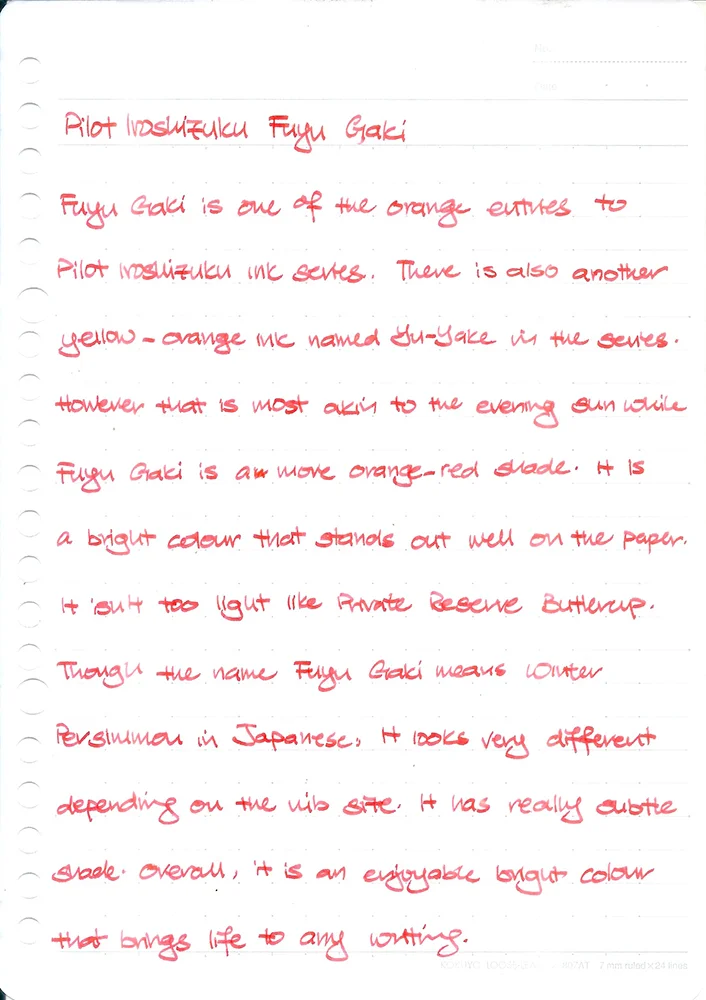 Pilot Iroshizuku Fuyu Gaki
Fuyu Gaki is one of the orange entries to
Pilot Iroshizuku ink series. There is also another
yellow-orange ink named Yu-Yake in the series.
However that is most akin to the evening sun while
Fuyu Gaki is a more orange-red shade. It is
a bright colour that stands out well on the paper.
It isn't too light like Private Reserve Buttercup.
Though the name Fuyu Gaki means Winter
Persimmon in Japanese, it looks very different
depending on the nib size. It has really subtle
shade. Overall, it is an enjoyable bright colour
that brings life to any writing.
7 mm ruled × 24 lines